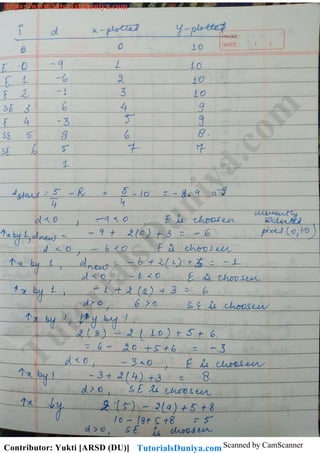 i d x-plotted y-plotted
DATE: / /
0 10
E 0 -9 1 10
E 1 -6 2 10
E 2 -1 3 10
SE 3 6 4 9
E 4 -3 5 9
SE 5 8 6 8
SE 6 5 7 7
1
dstart = 5/4 - R = 5/4 - 10 = -8.9 = -9
d<0, -9<0 E is choosen
selected
↑x by 1, dnew = -9 + 2(0) + 3 = -6 pixel (0,10)
d<0, -6<0 E is choosen
↑x by 1, dnew = -6 + 2(1) + 3 = -1
d<0 -1<0 E is choosen
↑x by 1, -1 + 2(2) + 3 = 6
d>0, 6>0 SE is choosen
↑x by 1, ↓y by 1.
2(3) - 2(10) + 5 + 6
= 6 - 20 + 5 + 6 = -3
d<0, -3<0, E is choosen
↑x by 1 -3 + 2(4) + 3 = 8
d>0, SE is choosen
↑x by 2(5) - 2(9) + 5 + 8
10 - 18 + 5 + 8 = 5
d>0, SE is choosen
TutorialsDuniya.com
Contributor: Yukti [ARSD (DU)] TutorialsDuniya.com Scanned by CamScanner